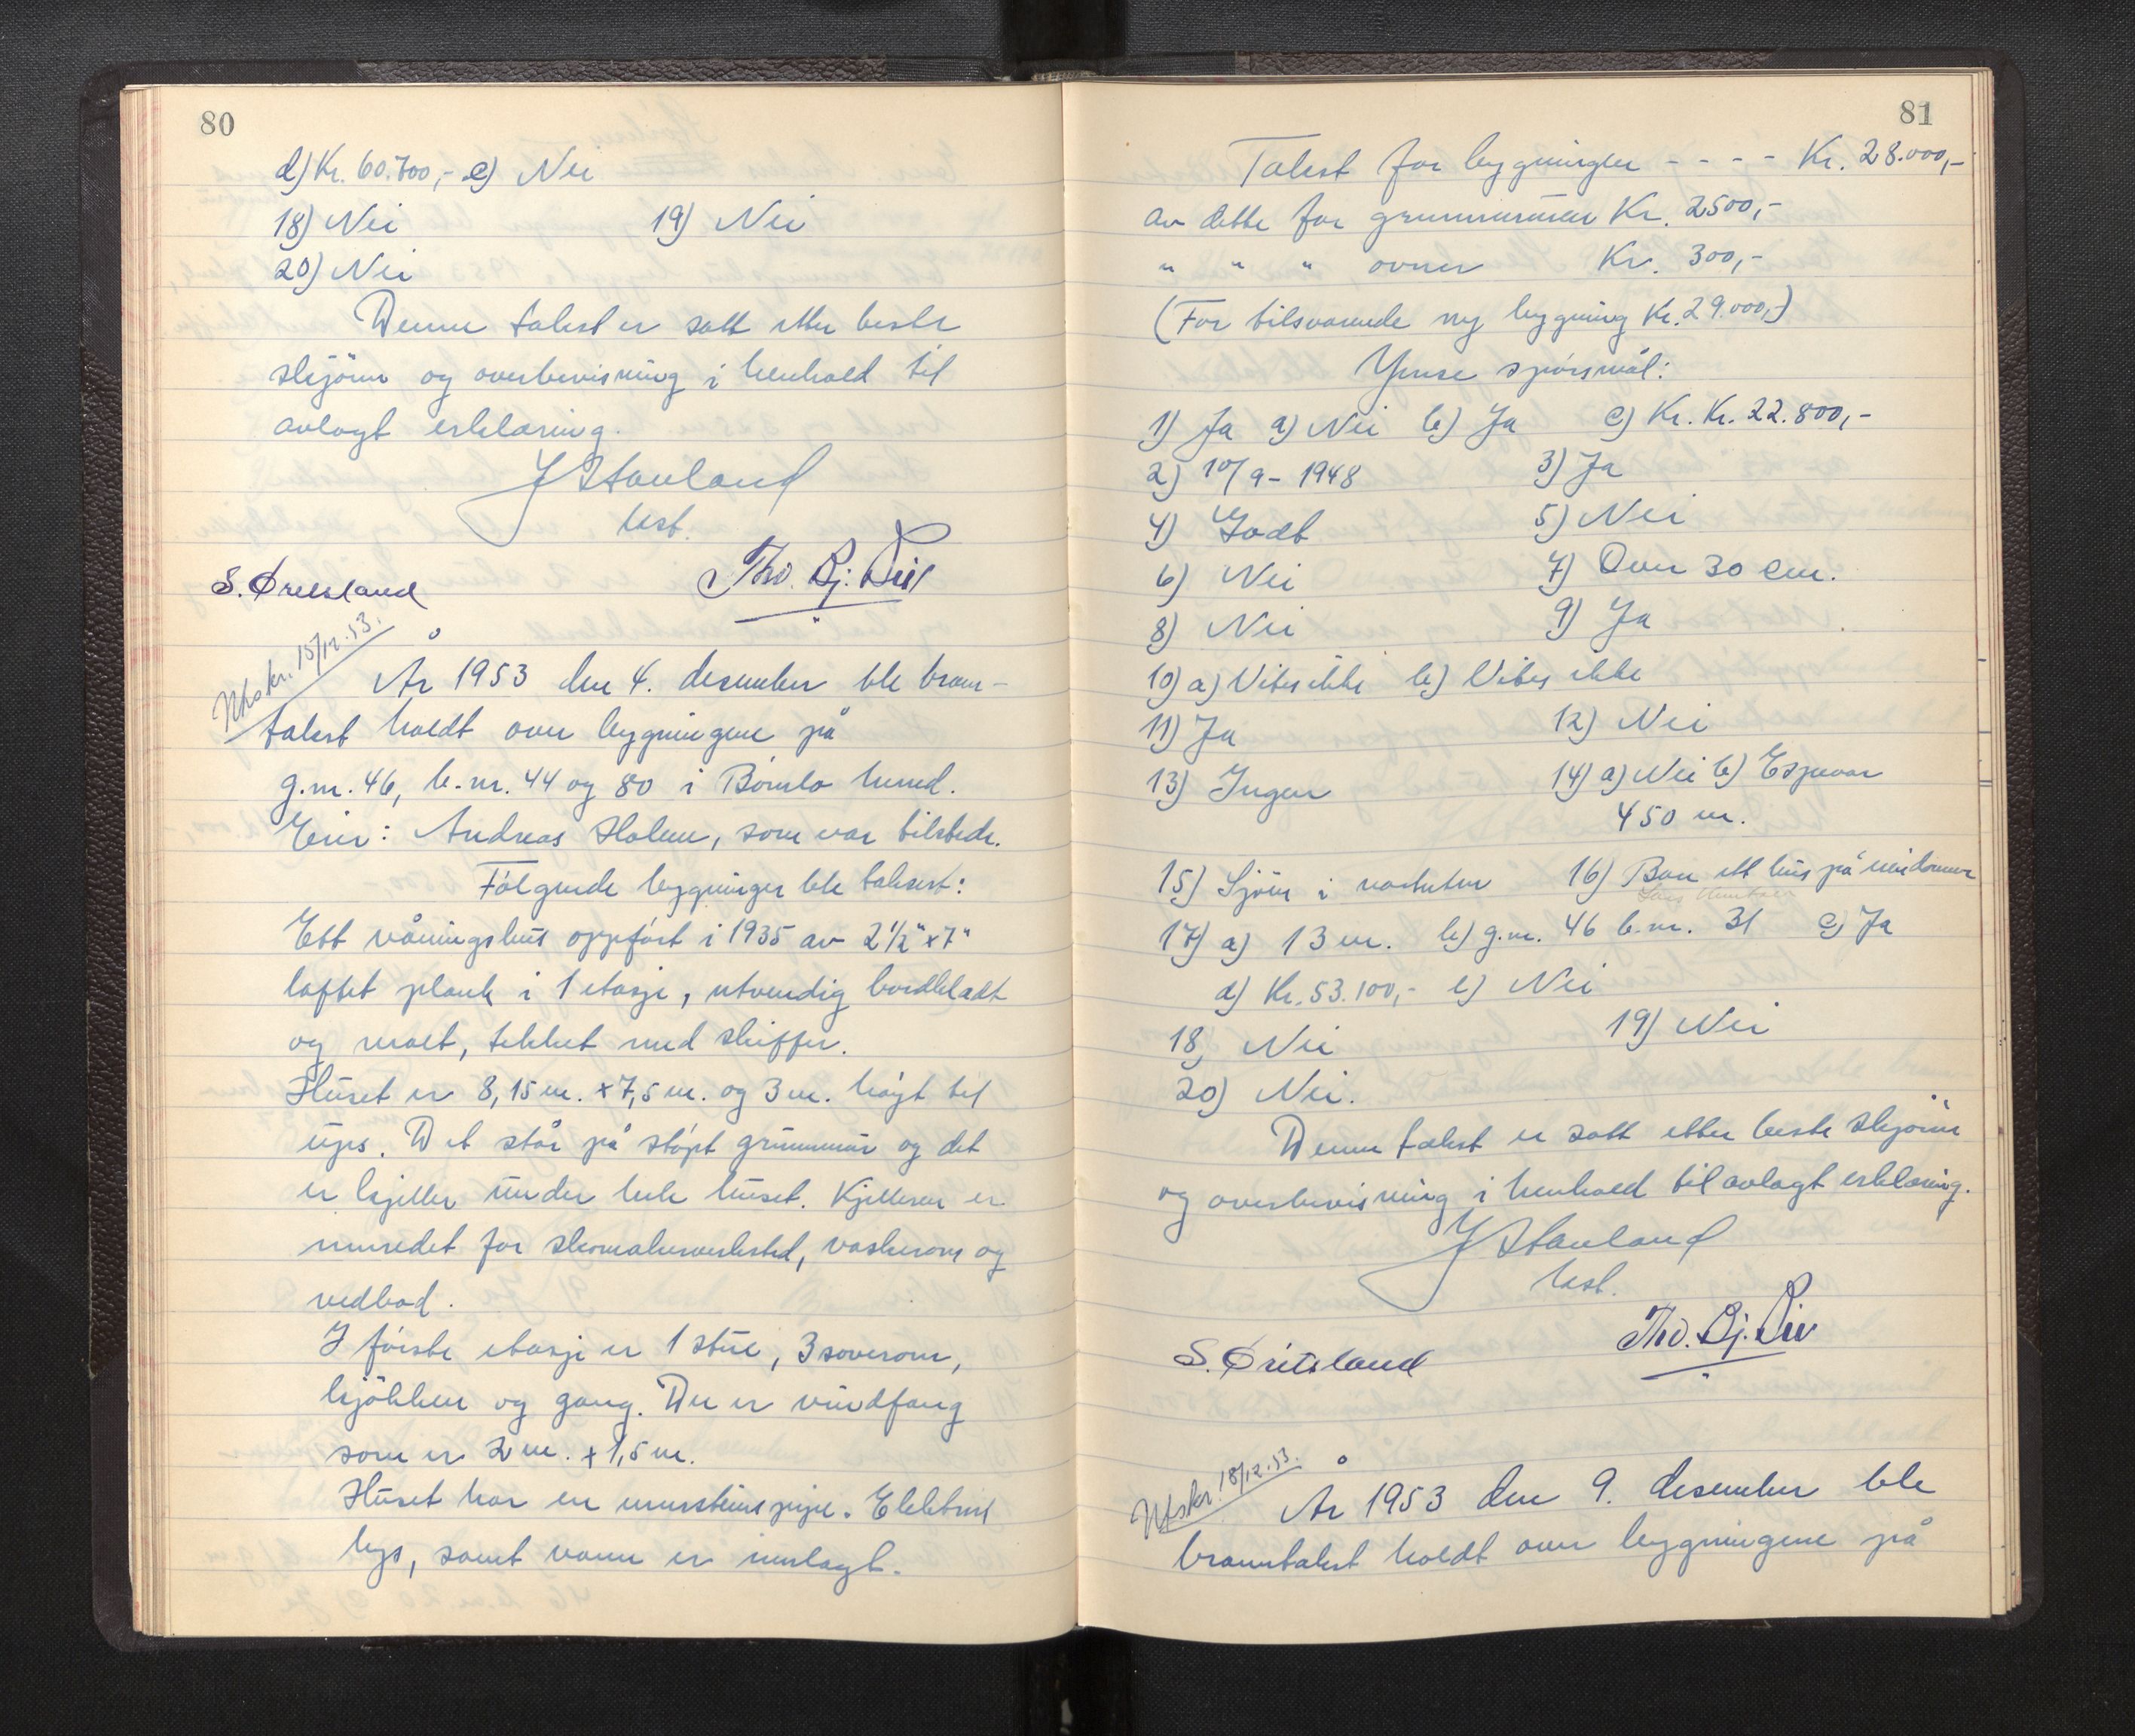 80
d) Kr. 60.700,- e) Nei
18) Nei 19) Nei
20) Nei
Denne takst er satt etter beste
skjönn og overbevisning i henhold til
avlagt erklæring.
J Stauland
last.
S. Øritsland Tho. Bj.
Utskr. 15/12-53.
År 1953 den 4. desember ble brann-
takst holdt over bygningene på
g.nr. 46, b.nr. 44 og 80 i Bömlo herred.
Eier: Andreas Holme, som var tilstede.
Fölgende bygninger ble taksert:
Ett våningshus oppfört i 1935 av 2½" x 7"
laftet plank i 1 etasje, utvendig bordkledt
og malt, tekket med skiffer.
Huset er 8,15 m. x 7,5 m. og 3 m. höyt til
ups. Det står på stöpt grunnmur og det
er kjeller under hele huset. Kjelleren er
innredet for skomakerverksted, vaskerom og
vedbod.
I förste etasje er 1 stue, 3 soverom,
kjökken og gang. Der er vindfang
som er 2 m. x 1,5 m.
Huset har en mursteins pipe. Elektrisk
lys, samt vann er innlagt.
81
Takst for bygningen - - - - Kr. 28.000,-
av dette for grunnmuren Kr. 2500,-
" " " ovner Kr. 300,-
(For tilsvarende ny bygning Kr. 29.000,-)
Ymse spörsmål:
1) Ja a) Nei b) Ja c) Kr. Kr. 22.800,-
2) 10/9 - 1948 3) Ja
4) Godt 5) Nei
6) Nei 7) Over 30 cm.
8) Nei 9) Ja
10) a) Vites ikke b) Vites ikke
11) Ja 12) Nei
13) Ingen 14) a) Nei b) Espevær
450 m.
15) Sjöen i nærheten 16) Bare ett hus på eiendommen
17) a) 13 m. b) g.nr. 46 b.nr. 31 c) Ja
d) Kr. 53.100,- e) Nei
18) Nei 19) Nei
20) Nei.
Denne takst er satt etter beste skjönn
og overbevisning i henhold til avlagt erklæring.
J Stauland
last.
S. Øritsland Tho. Bj.
Utskr. 18/12-53.
År 1953 den 9. desember ble
branntakst holdt over bygningene på